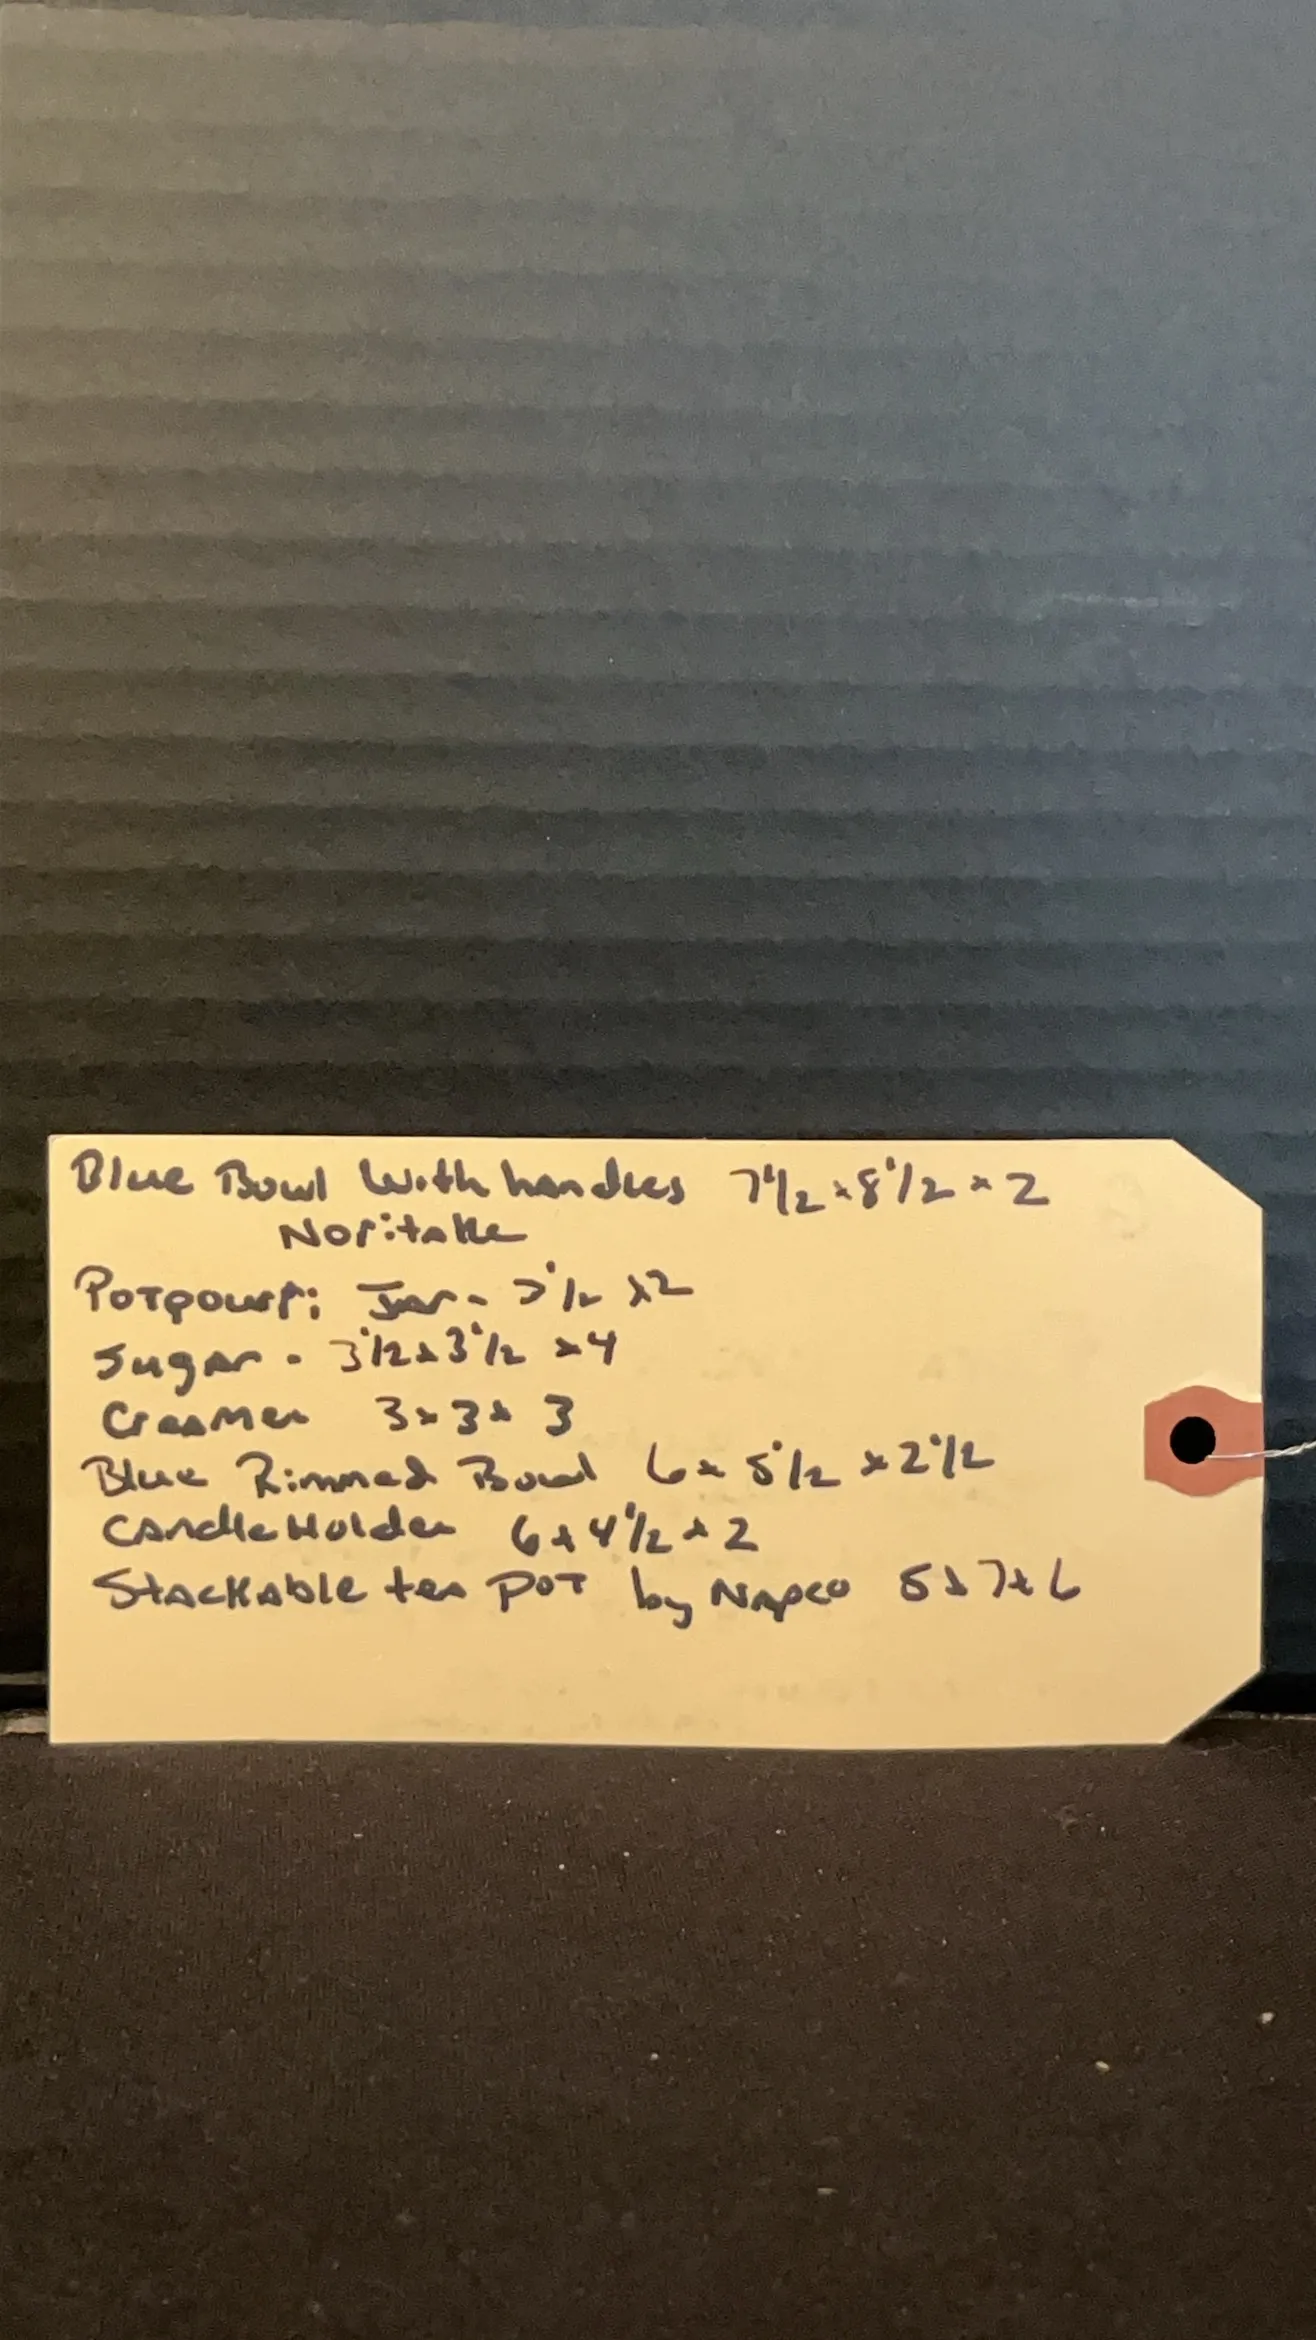 Blue Bowl With handles 7 1/2 x 8 1/2 x 2
Noritake
Potpourri Jar - 3 1/2 x 2
Sugar - 3 1/2 x 3 1/2 x 4
Creamer 3 x 3 x 3
Blue Rimmed Bowl 6 x 5 1/2 x 2 1/2
Candle Holder 6 x 4 1/2 x 2
Stackable tea pot by Napco 5 x 7 x 6